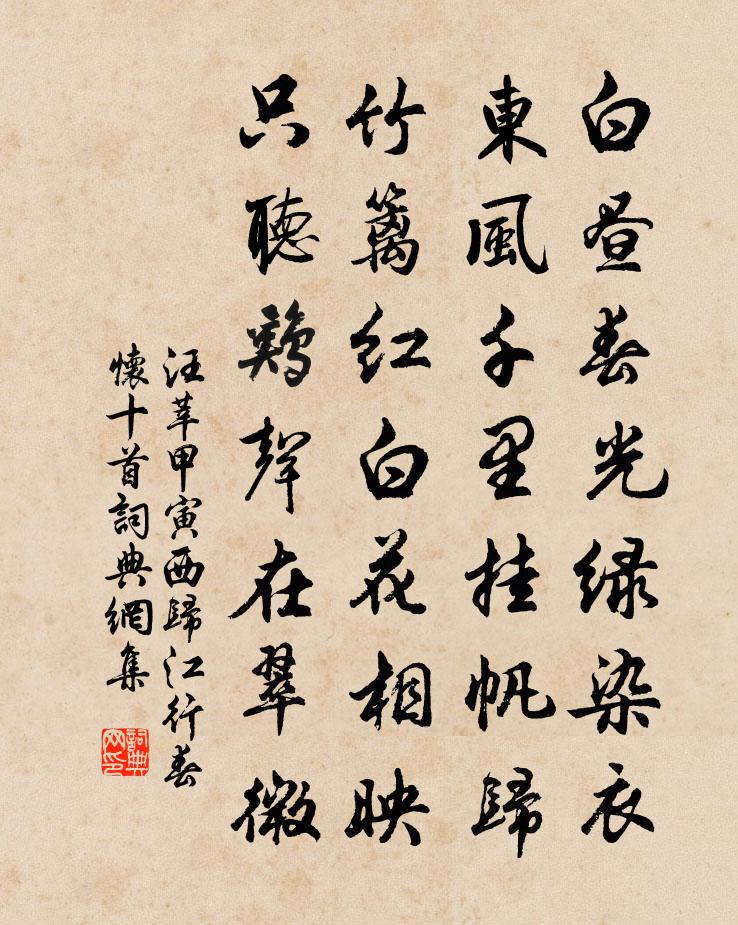 白晝春光綠染衣
東風千里挂帆歸
竹籬紅白花相映
只聽鷄聲在翠微
汪莘甲寅西歸江行春
懷十首詞典網集
詞典網印